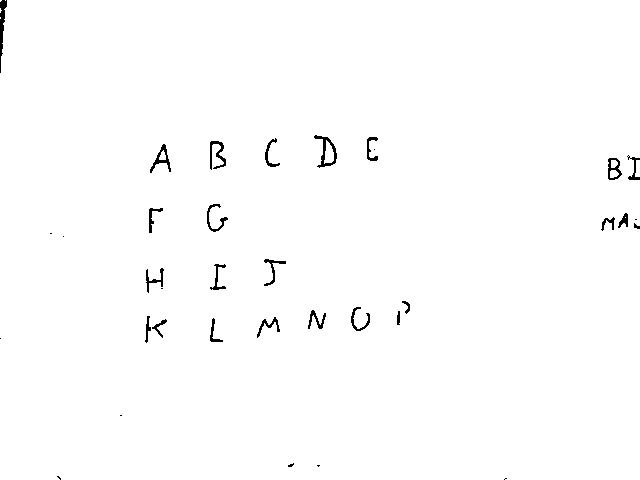 A B C D E
F G
H I J
K L M N O P
BI